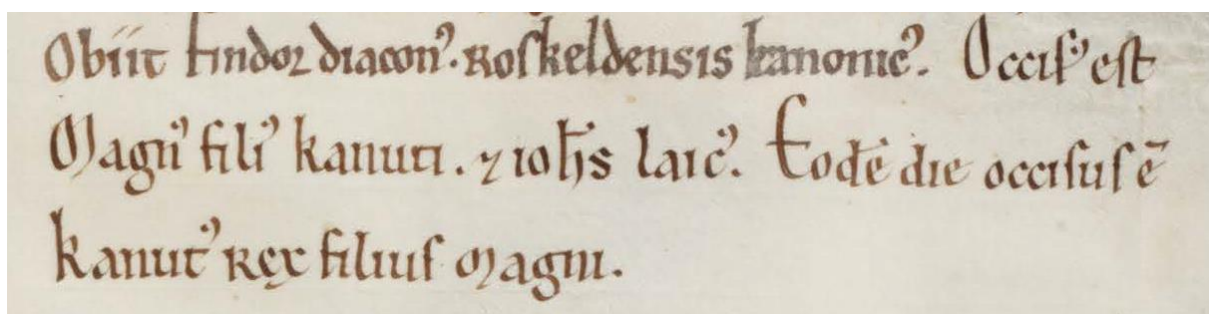 Obiit tindor diaconꝰ. Roſkeldensis kanonicꝰ. Occiſꝰ eſt
Magnꝰ filiꝰ kanuti. ⁊ ioh̅s laicꝰ. Eodē die occiſuſ ē
kanutꝰ Rex filiuſ Magni.